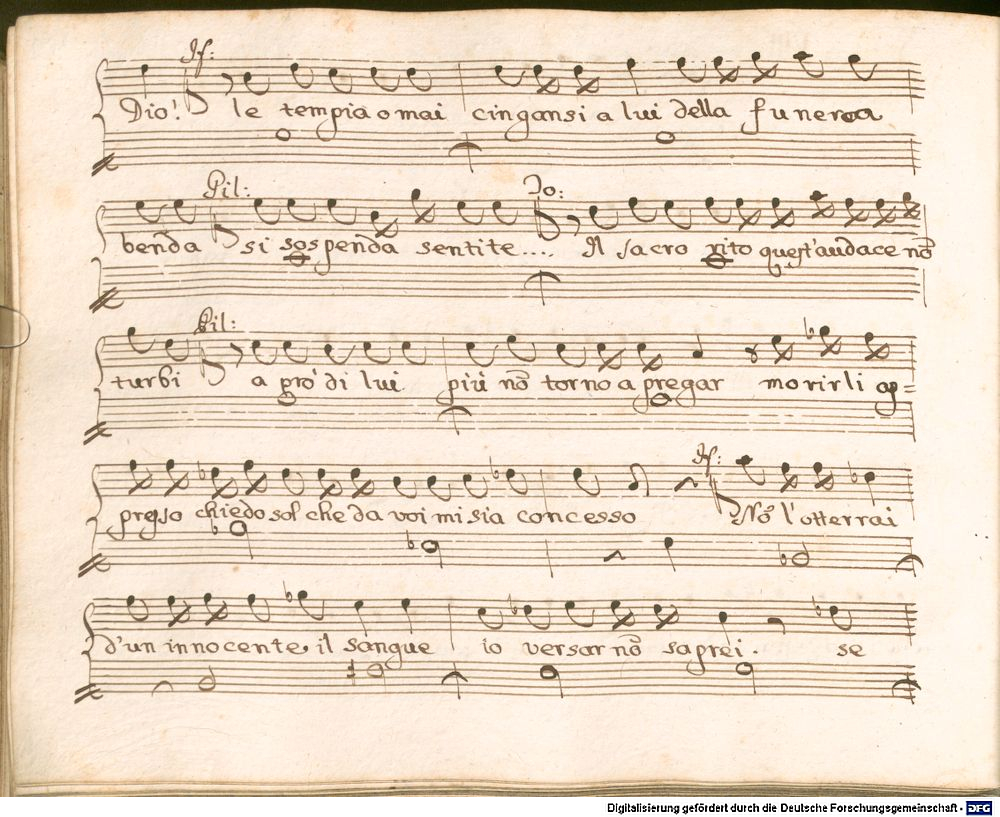 If:
Dio! le tempia omai cingansi a lui della funerea
Pil: To:
benda si sospenda sentite.... Il sacro rito quest'audace nō
Pil:
turbi a prò di lui più nō torno a pregar morirli ap=
If:
presso chiedo sol che da voi mi sia concesso Nō l'otterrai
d'un innocente, il sangue io versar nō saprei. se
Digitalisierung gefördert durch die Deutsche Forschungsgemeinschaft - DFG